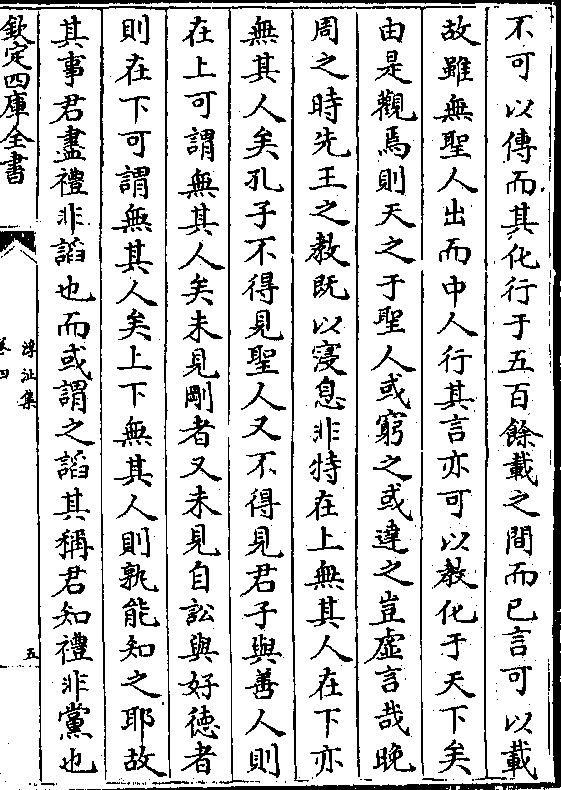 不可以傳而其化行于五百餘載之間而已言可以載
故雖無聖人出而中人行其言亦可以教化于天下矣
由是觀焉則天之于聖人或窮之或達之豈虛言哉晚
周之時先王之教既以寖息非特在上無其人在下亦
無其人矣孔子不得見聖人又不得見君子與善人則
在上可謂無其人矣未見剛者又未見自訟與好徳者
則在下可謂無其人矣上下無其人則孰能知之耶故
其事君盡禮非諂也而或謂之諂其稱君知禮非黨也
欽定四庫全書
浮沚集
卷四
五